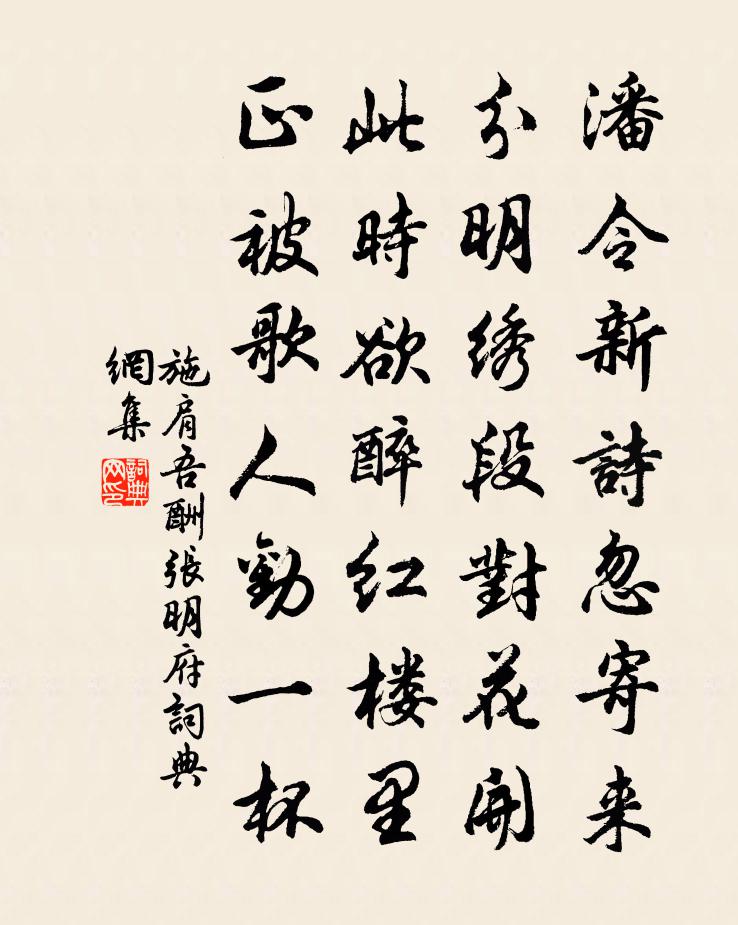 潘令新詩忽寄来
分明绣段對花開
此時欲醉红楼里
正被歌人勸一杯
施肩吾酬張明府詞典
網集
詞典
网印